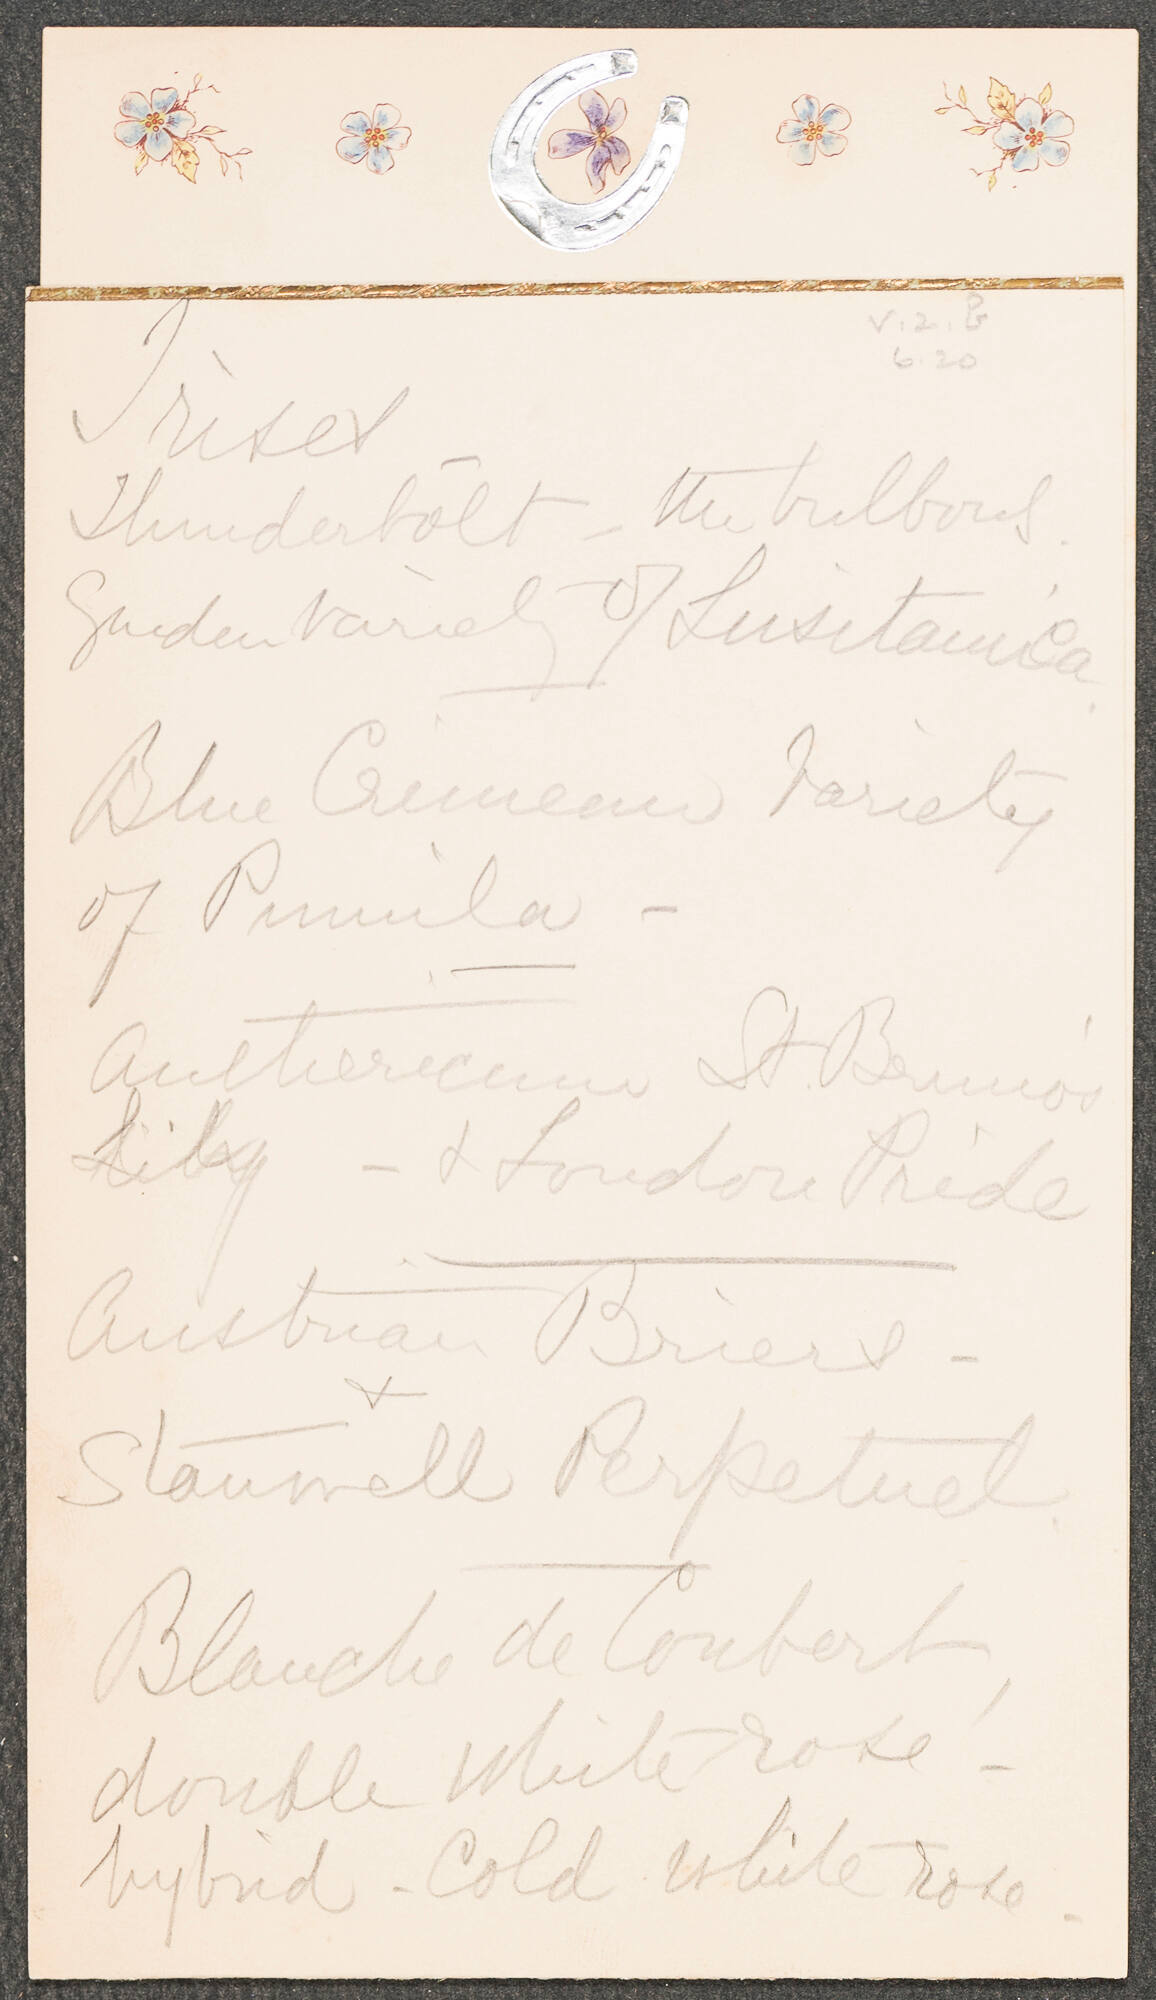 V.2.B
6.20
Irises
Thunderbolt - the bulbous
Garden variety of Lusitanica.
Blue Crimean Variety
of Pumila -
Anthericum St. Bruno's
Lily - & London Pride
Austrian Briers -
&
Stanwell Perpetual.
Blanche de Coubert,
double white rose -
hybrid - Cold white rose -